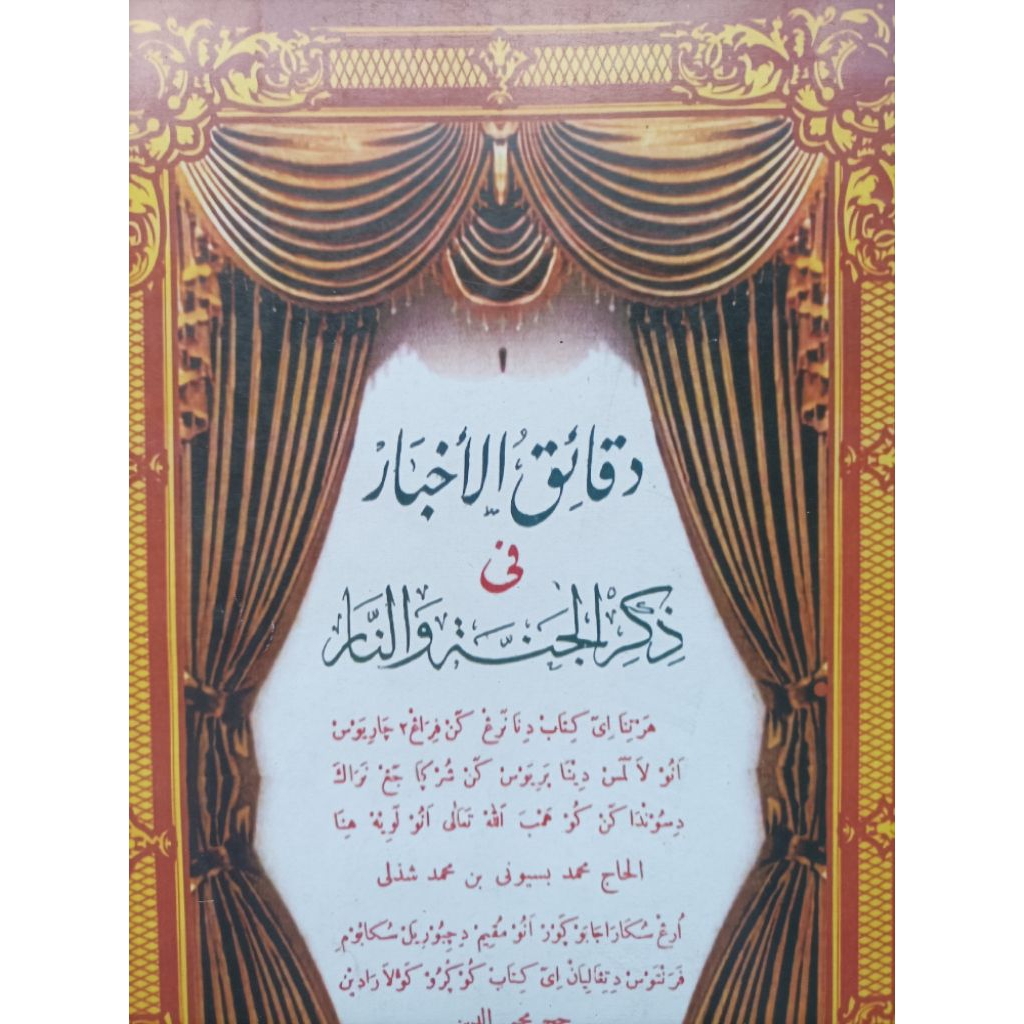 دقائق الأخبار
فى
ذكر الجنة والنار
هَرْتِنَا اِىْ كِتَابْ دِنَا نَّرَڠْ كَنْ فِرَاڠْ٢ چَارِيَوْسْ
اَنُوْ لَا لَمْسْ دِيْنَا پَرِيَوْسْ كَنْ سُرْكَا جَڠْ نَرَاكَ
دِسُوْنْدَا كَنْ كُوْ هَمْبَ اَللّٰهْ تَعَالٰى اَنُوْ لَوِيْهْ هِنَا
الحاج محمد بسيونى بن محمد شذلى
اُرَڠْ سُكَارَاجَا بَوْڮَوْرْ اَنُوْ مُقِيْمْ دِچِبُوْرِيَلْ سُكَابُوْمِ
فَرَنْتَوْسْ دِتِڤَالِيَانْ اِىْ كِتَابْ كُوْ ڮُرُوْ كَوْلَا رَادِيْنْ